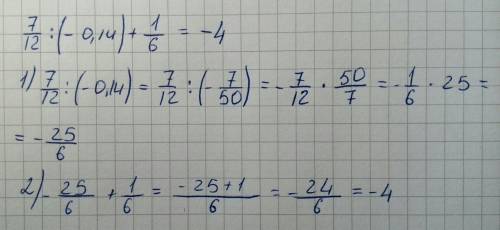 7/12 : (- 0,14) + 1/6 = -4
1) 7/12 : (- 0,14) = 7/12 : (- 7/50) = - 7/12 · 50/7 = - 1/6 · 25 =
= - 25/6
2) - 25/6 + 1/6 = (-25+1)/6 = - 24/6 = -4